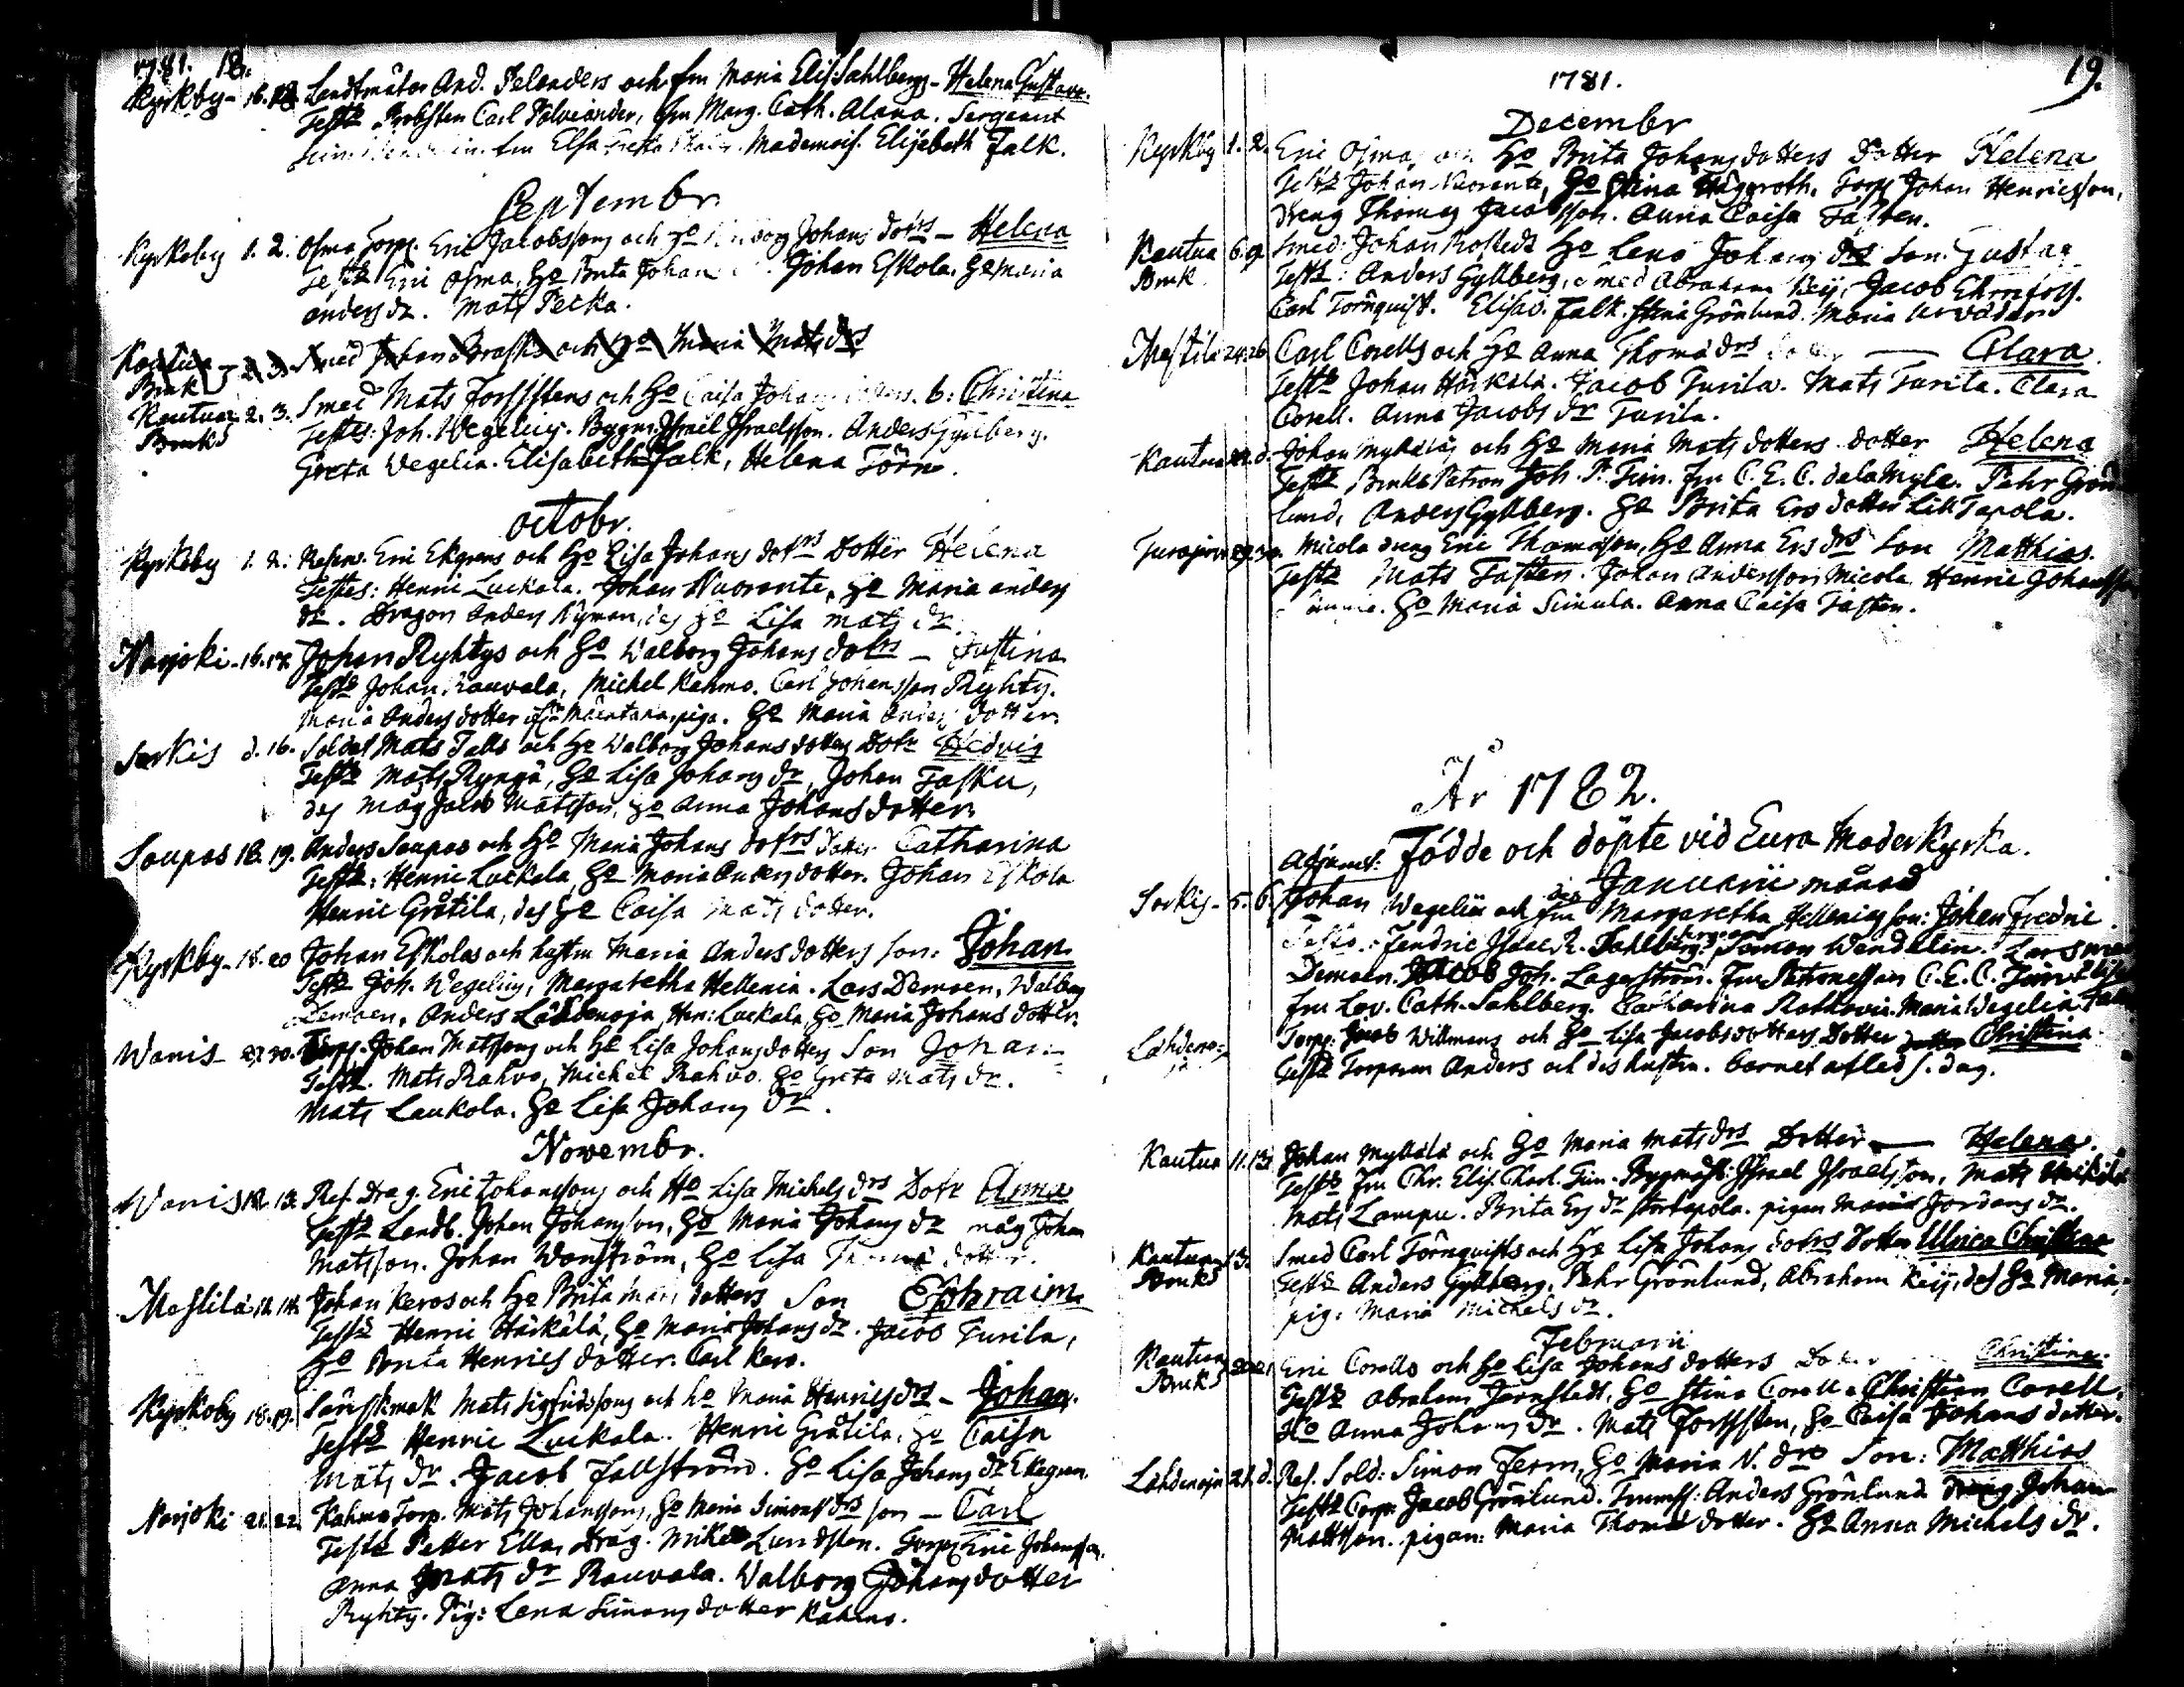 1781. 18.
Kyrkby - 16. 18. Landtmätar And. Telanders och fru Maria Elis. Sahlbergs - Helena Gustava.
Test: Probsten Carl Polviander, fru Marg. Cath. Alana. Sergeant
fru Elsa Greta Mademois. Elisabeth Falk.
Septembr
Kyrkoby 1. 2. Osma Torp. Eric Jacobssons och Ho Johans dotrs - Helena
Test: Eric Osma, Ho Brita Johans Johan Eskola. Ho Maria
anders dr. Mats Pecka.
Kautua Bruk 2. 3. Smed Johan Brasks och Ho Maria Mats drs
Kautua Bruk 2. 3. Smed Mats Forsstens och Ho Caisa Johans b: Christina
Testes: Joh. Wegelius. Byggm. Israel Israelsson. Anders Gyllberg.
Greta Wegelia. Elisabeth Falk, Helena Törn.
octobr.
Kyrkoby 1. 2. Eric Ekgrens och Ho Lisa Johans dotrs Dotter Helena
Testes: Henric Luckala. Johan Nuorante, Ho Maria anders
dr. Dragon Anders Nyman, des Ho Lisa mats dr.
Narjoki - 16. 17. Johan Ryhtys och Ho Walborg Johans dotrs - Justina
Test: Johan Rauvala, Michel Kahmo. Carl Johansson Ryhty.
Maria Anders dotter piga. Ho Maria Anders dotter.
Sorkis d. 16. Soldat Mats Talls och Ho Walborg Johans dotters Dotr Hedvig
Test: Mats Ryngä, Ho Lisa Johans dr, Johan Tasku,
des mag Jacob Matsson, Ho Anna Johans dotter.
Soupas 18. 19. Anders Soupas och Ho Maria Johans dotrs dotter Catharina
Test: Henric Luckala, Ho Maria Anders dotter. Johan Eskola
Henric Gråtila, des Ho Caisa Mats dotter.
Kyrkby - 18. 20 Johan Eskolas och hustru Maria Anders dotters son: Johan
Test: Joh. Wegelius, Margaretha Hellenia. Lars Demoen, Walborg
Demoen, Anders Lähdenoja, Hen: Luckala, Ho Maria Johans dotter.
Wanis 27. 30. Torp. Johan Matssons och Ho Lisa Johans dotters Son Johan -
Test: Mats Rahvo, Michel Rahvo. Ho Greta Mats dr.
Mats Laukola. Ho Lisa Johans dr.
Novembr.
Wanis 12. 13. Ref. Drag. Eric Johanssons och Ho Lisa Michels drs Dotr Anna
Test: Landb. Johan Johansson, Ho Maria Johans dr mag Johan
Matsson. Johan Wanström, Ho Lisa Thomæ dotter.
Mestilä 12. 14. Johan Keros och Ho Brita Mats dotters Son Ephraim
Test: Henric Härkälä, Ho Maria Johans dr. Jacob Turila,
Ho Brita Henrics dotter. Carl Kero.
Kyrkoby 18. 19. Länskmak Mats Sigfridssons och ho Maria Henrics drs - Johan.
Test: Henric Luckala. Henric Gråtila, Ho Caisa
Mats dr. Jacob Fallström. Ho Lisa Johans dr Ekegren.
Narjoki 21. 22. Kahmo Torp. Mats Johanssons, Ho Maria Simons drs son - Carl
Test: Petter Ella, Drag. Mikel Lundsten. Torp. Eric Johansson.
Anna Mats dr Rauvala. Walborg Johans dotter
Ryhty. Pig: Lena Simons dotter Kahmo.
1781. 19.
Decembr
Kyrkby 1. 2. Eric Osmas och Ho Brita Johans dotters Dotter Helena
Test: Johan Nuorante, Ho Stina Häggroth. Torp. Johan Henricsson,
dreng Thomas Jacobsson. Anna Caisa Fasten.
Kautua Bruk 6. 9. Smed: Johan Rostedts Ho Lena Johans drs son. Gustav
Test: Anders Gyllberg, smed Abraham Keij, Jacob Ehrnfors.
Carl Törnquist. Elisab. Falk. Stina Grönlund. Maria
Mestilä 24. 26. Carl Corells och Ho Anna Thomæ drs Dotter - Clara
Test: Johan Härkälä. Jacob Turila. Mats Turila. Clara
Corell. Anna Jacobs dr Turila.
Kautua Johan Myllyläs och Ho Maria Mats dotters dotter Helena
Test: Bruks Patron Joh. P. Timm. fru C. E. C. de la Myle. Pehr Grön-
lund, Anders Gyllberg. Ho Brita Ers dotter Lill Tapola.
Turajärvi 29. 30. Micola dreng Eric Thomasson, Ho Anna Ers drs Son Matthias.
Test: Mats Fasten. Johan Andersson Micola. Henric Johansson
Ho Maria Simula. Anna Caisa Fasten.
År 1782.
Födde och döpte vid Eura Moderkyrka.
Januarii månad
Sorkis - 5. 6. Johan Wegelii och fru Margaretha Hellenias son: Johan Fredric
Test: Fendric Isaac R. Sahlberg. Simon Wendelin. Lars
Demoen. Jacob Joh. Lagerström. fru Patronessan C. E. C. Timm
fru Lov. Cath. Sahlberg. Catharina Rothovia. Maria Wegelia.
Lähdenoja Torp: Jacob Willmans och Ho Lisa Jacobs dotters Dotter Christina
Test: Torparen Anders och des hustru. barnet afled s. dag.
Kautua 11. 13. Johan Myllylä och Ho Maria Mats drs Dotter - Helena.
Test: Fru Chr. Elis. Charl. Timm. Byggmäst: Israel Israelsson, Mats
Mats Lampu. Brita Ers dr Stortapola. pigan Maria Jordans dr.
Kautua Bruks 13. Smed Carl Törnquists och Ho Lisa Johans dotrs Dotter Ulrica Christina
Test: Anders Gyllberg, Pehr Grönlund, Abraham Keij, des Ho Maria,
pig: Maria Michels dr.
Februarii
Kautua Bruks 20. 21. Eric Corells och Ho Lisa Johans dotters Dotter Christina.
Test: Abraham Järnstedt, Ho Stina Corell. Christian Corell,
Ho Anna Johans dr. Mats Forssten, Ho Caisa Johans dotter.
Lähdenoja 21. d. Ref. Sold: Simon Ferm, Ho Maria N. drs Son: Matthias
Test: Corp. Jacob Grönlund. Trumsl: Anders Grönlund. Dreng Johan
Mattson. pigan: Maria Thomæ dotter. Ho Anna Michels dr.